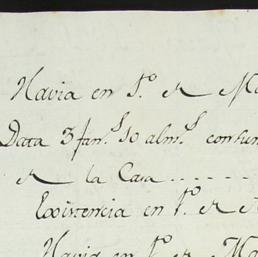 Havia en 1.º de Ma
Data 3 fan.s 10 alm.s consum
de la Casa ------
Existencia en 1.º de
Havia en 1.º de Ma